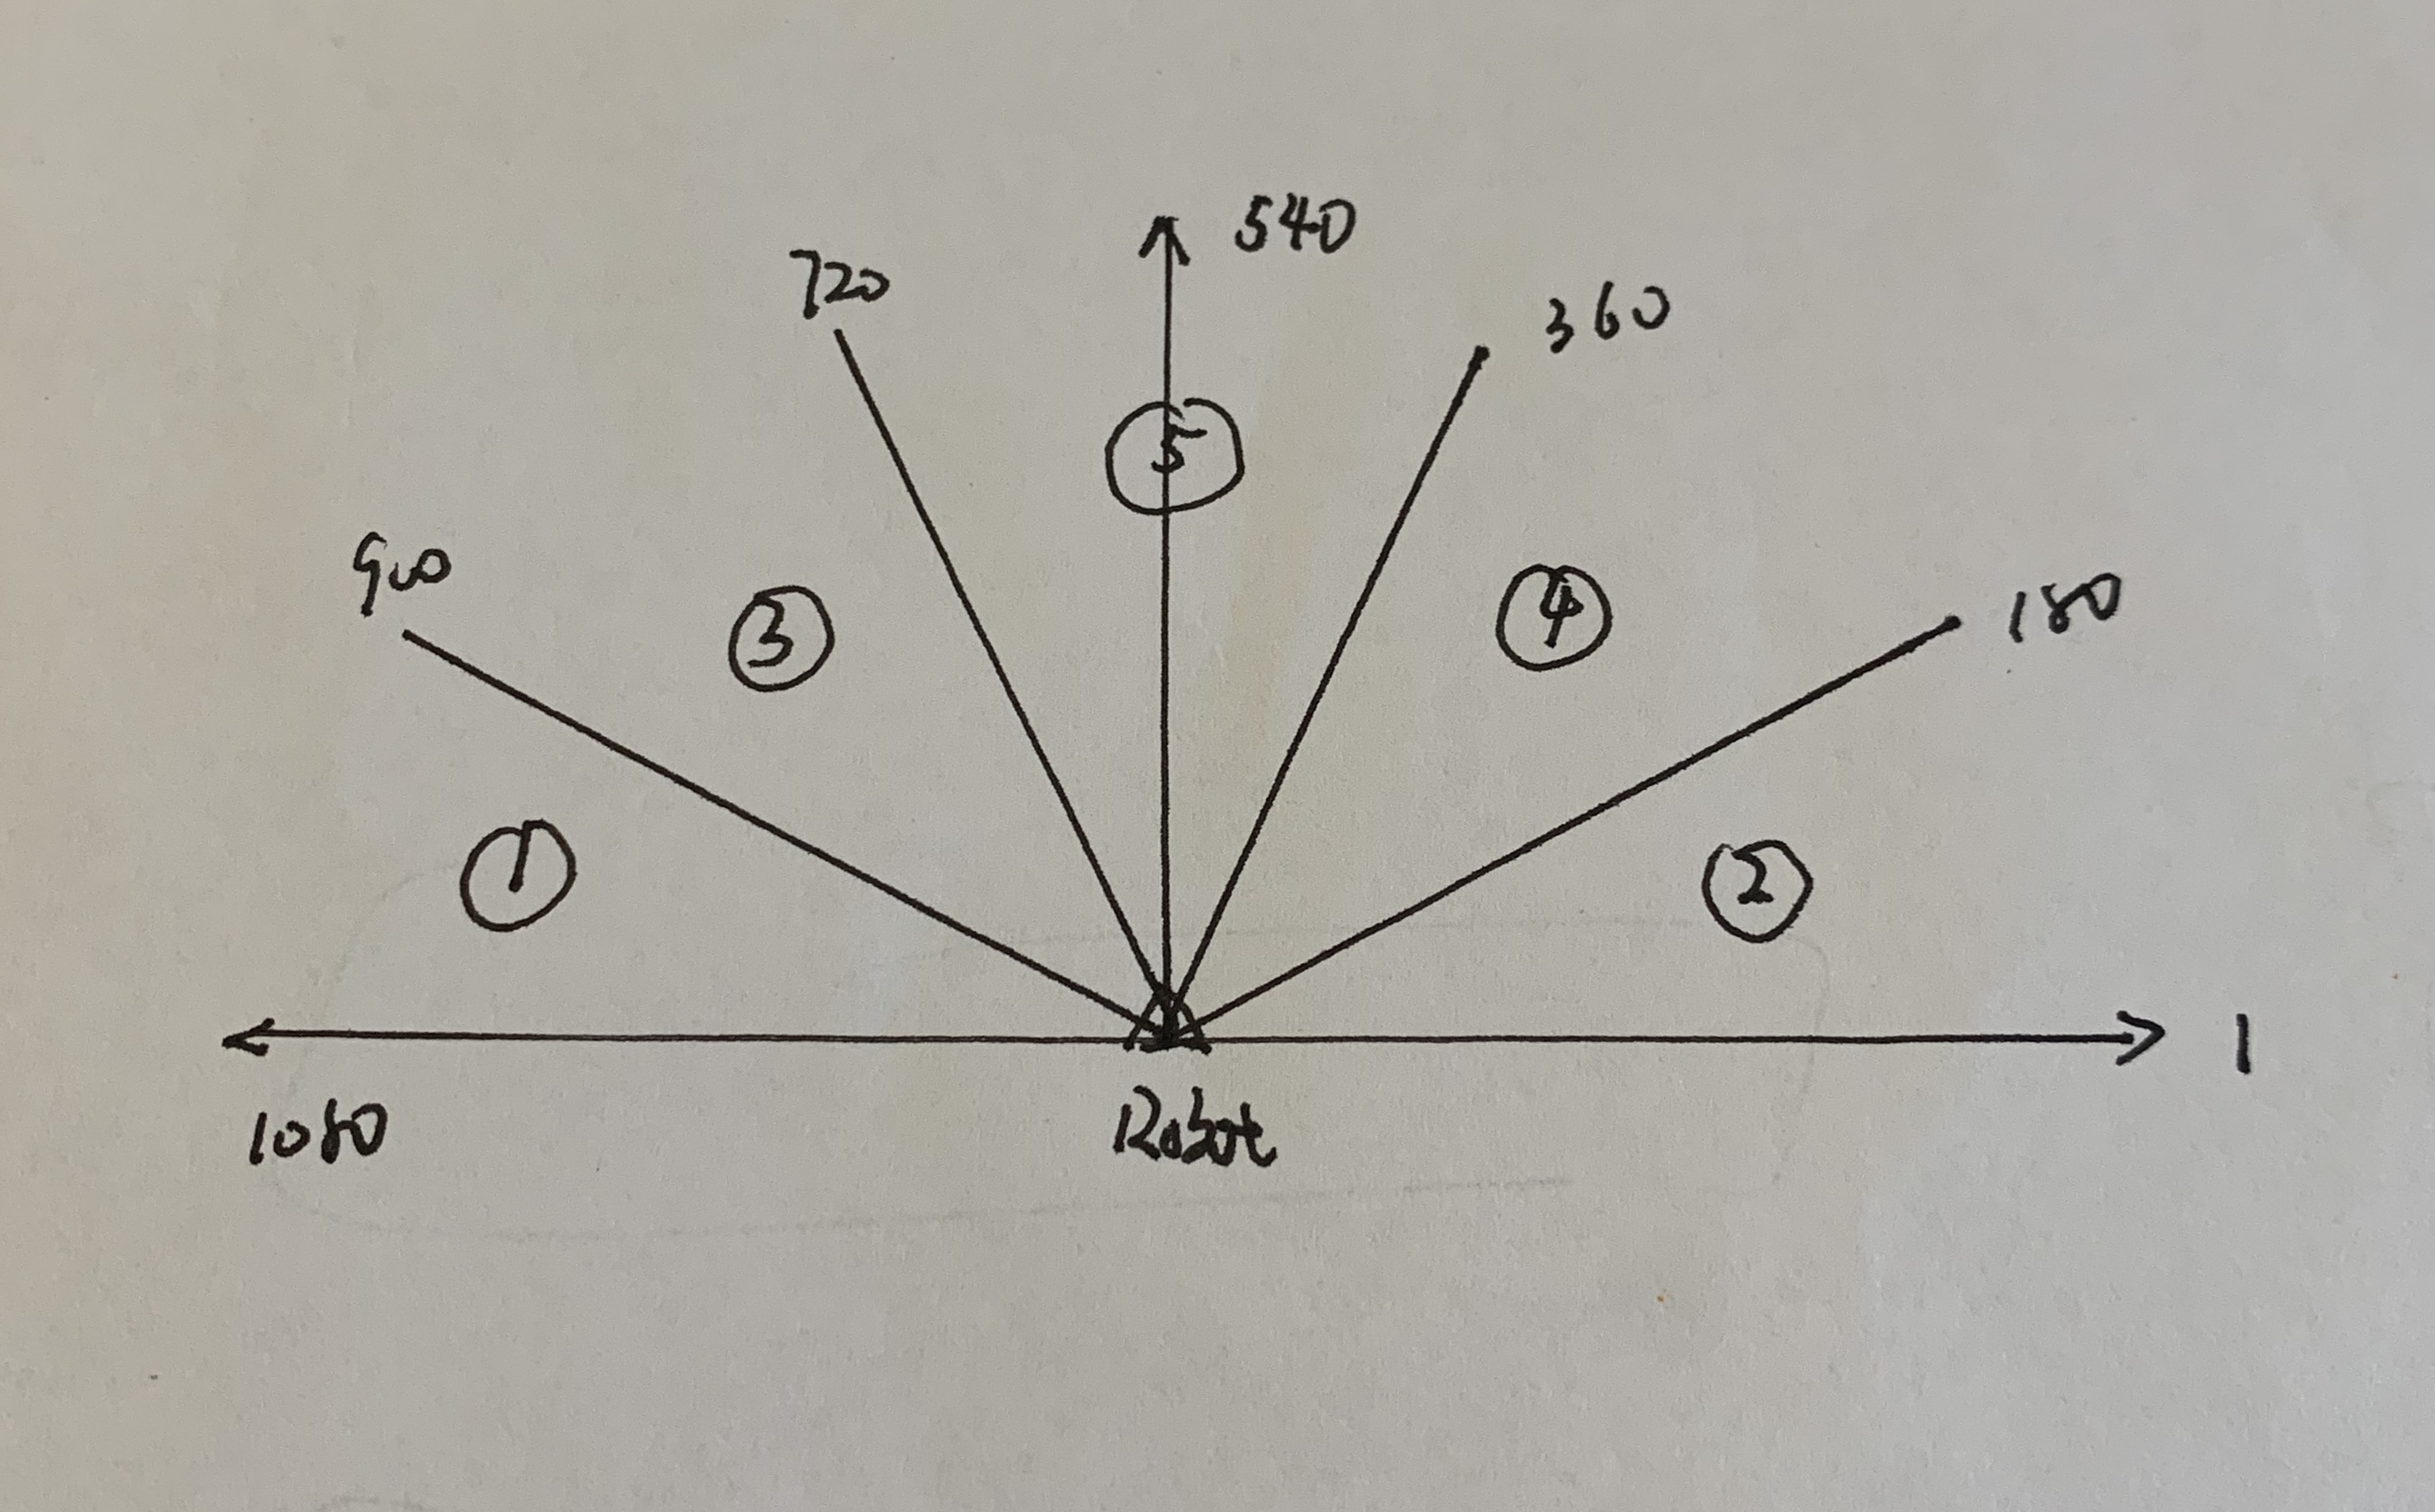 540
720
360
⑤
900
③
④
180
①
②
1
1080
Robot